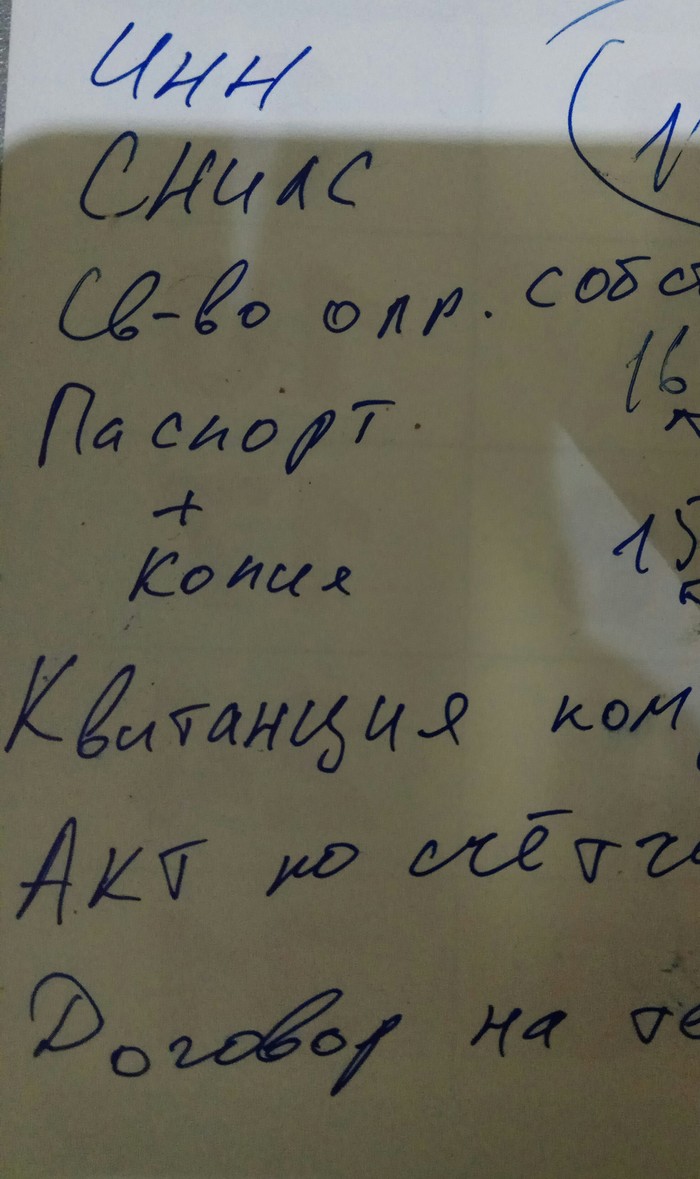 ИНН
СНИЛС
Св-во о пр. собст
16
Паспорт.
+
15
копия
Квитанция ком
Акт по счётч
Договор на те